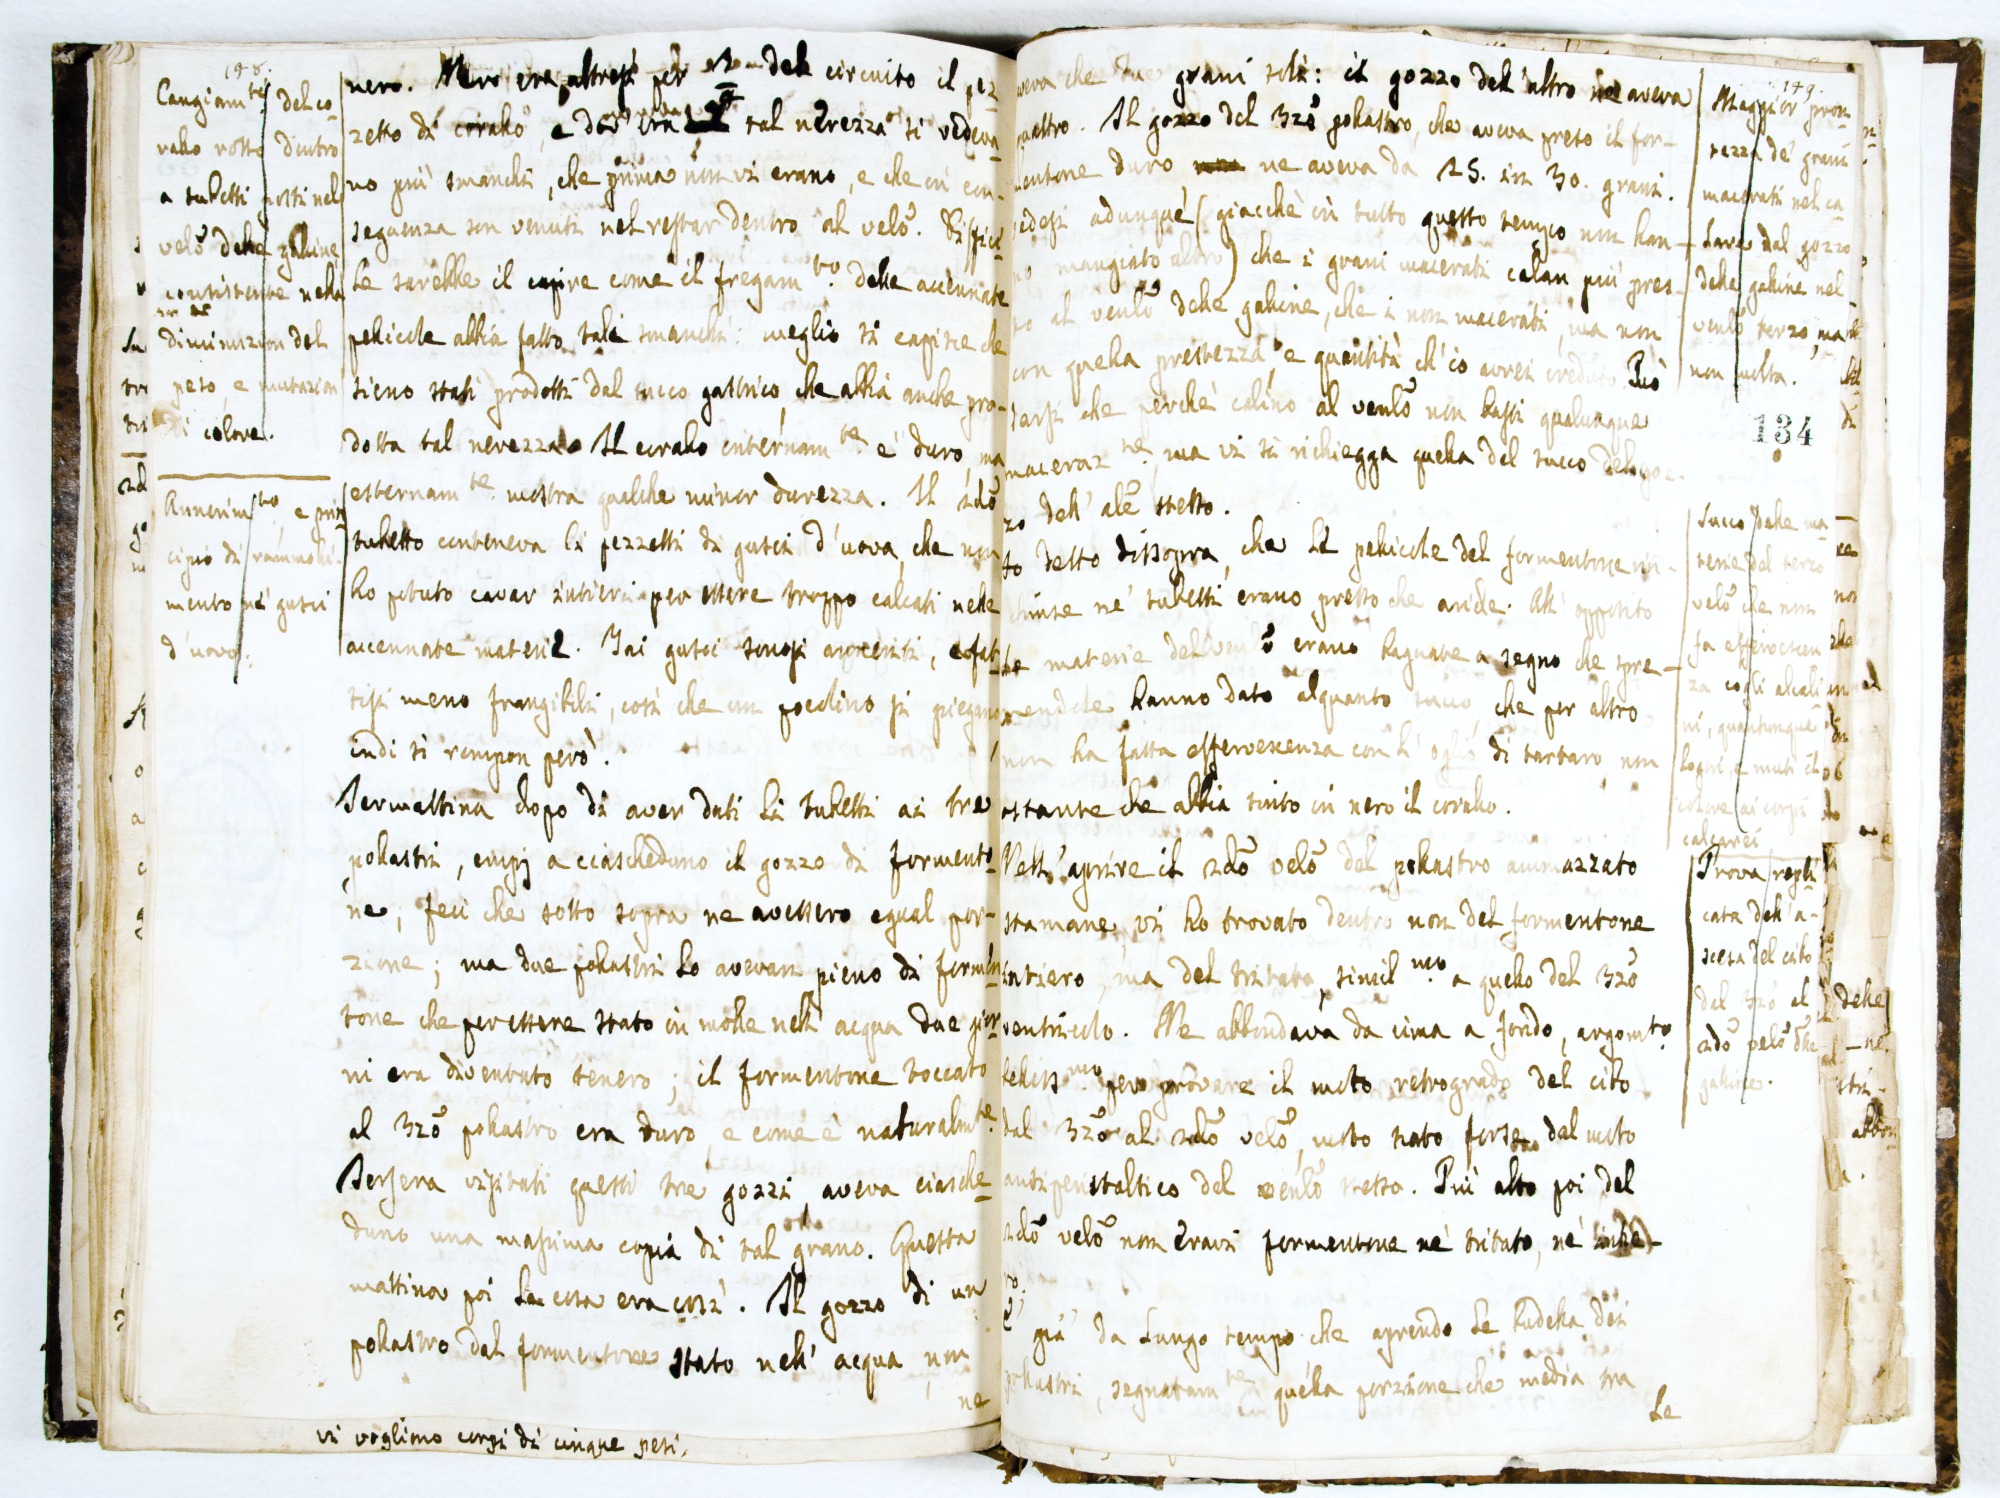 198.
Cangiam.te del co
rallo rosso dentro
a tubetti posti nel
velo delle galline
consistente nella
diminuzion del
peso, e mutazion
di colore.
Annerim.to, e prin
cipio di rammolli-
mento ne' gusci
d'uova.
nero. Nero era altresì per 12 del circuito il pez
zetto di corallo, e dov'era tal nerezza si vedeva
no più smanchi, che prima non vi erano, e che in con-
seguenza son venuti nel restar dentro al velo. Diffici
le sarebbe il capire come il fregam.to delle accennate
pellicole abbia fatto tali smanchi: meglio si capisce che
sieno stati prodotti dal succo gastrico, che abbia anche pro-
dotta tal nerezza. Il corallo internam.te è duro, ma
esternam.te mostra qualche minor durezza. Il 2do
tubetto conteneva li pezzetti di gusci d'uova, che non
ho potuto cavar intieri per essere troppo calcati nelle
accennate materie. Tai gusci sonosi anneriti, e fat
tisi meno frangibili, così che un pocolino si piegano
indi si rompon però.
Jermattina dopo di aver dati li tubetti ai tre
pollastri, empij a ciascheduno il gozzo di formento
ne, feci che sotto sopra ne avessero egual por-
zione; ma due pollastri lo avevan pieno di formen
tone che per essere stato in molle nell'acqua due gior
ni era diventato tenero; il formentone toccato
al 3zo pollastro era duro, e come è naturalm.te
Jersera visitati questi tre gozzi, aveva ciasche
duno una massima copia di tal grano. Questa
mattina poi la cosa era così. Il gozzo di un
pollastro dal formentone stato nell'acqua, non
ne
vi vogliono corpi di cinque pesi.
199.
aveva che due grani soli: il gozzo dell'altro ne aveva
quattro. Il gozzo del 3zo pollastro, che aveva preso il for-
mentone duro ne aveva da 25. in 30. grani.
Vedesi adunque (giacchè in tutto questo tempo non han-
no mangiato altro) che i grani macerati calan più pres-
to al venlo delle galline, che i non macerati, ma non
con quella prestezza, e quantità ch'io avrei creduto. Può
darsi che perchè calino al venlo non basti qualunque
maceraz.ne, ma vi si richiegga quella del succo del goz-
zo dell'ale stesso.
Ho detto dissopra, che le pellicole del formentone rin-
chiuse ne' tubetti erano presso che aride. All'opposito
le materie del venlo erano bagnate a segno che spre-
mendole hanno dato alquanto succo, che per altro
non ha fatta effervescenza con l'oglio di tartaro, non
ostante che abbia tinto in nero il corallo.
Nell'aprire il 2do velo del pollastro ammazzato
stamane, vi ho trovato dentro non del formentone
intiero, ma del tritato, simil.mo a quello del 3zo
ventricolo. Ne abbondava da cima a fondo, argom.to
bellis.mo per provare il moto retrogrado del cibo
dal 3zo al 2do velo, moto nato forse dal moto
antiperistaltico del venlo stesso. Più alto poi del
2do velo non eravi formentone nè tritato, nè intie-
ro.
È già da lungo tempo che aprendo le budella dei
pollastri, segnatam.te quella porzione che media tra
le
Maggior pron
tezza de' grani
macerati nel ca
lare dal gozzo
delle galline nel
venlo terzo, ma
non molta.
134
Succo delle ma
terie del terzo
velo che non
fa effervescen
za cogli alcali
ni, quantunque
bagni, e muti il
colore ai corpi
calcarei
Prova repli
cata dell'a-
scesa del cibo
dal 3zo al
2do velo d'lle
galline.